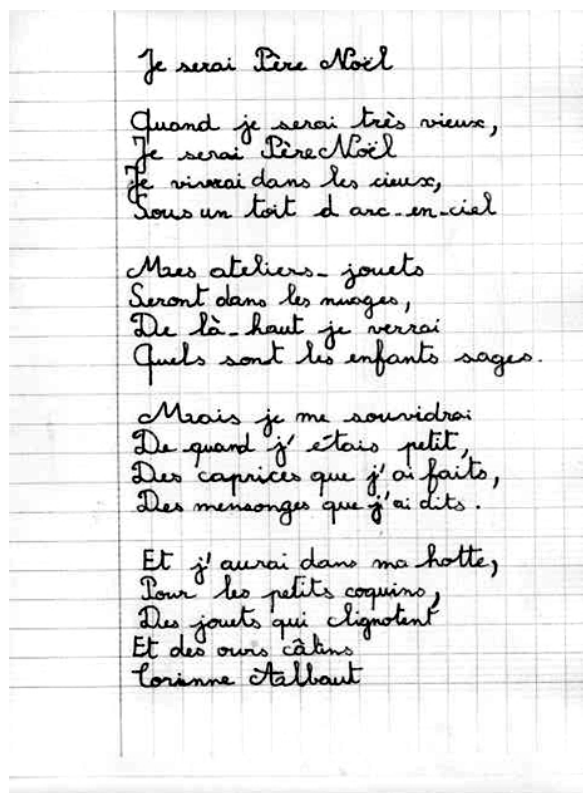 Je serai Père Noël
Quand je serai très vieux,
Je serai Père Noël
Je vivrai dans les cieux,
Sous un toit d arc-en-ciel
Mes ateliers-jouets
Seront dans les nuages,
De là-haut je verrai
Quels sont les enfants sages.
Mais je me souvidrai
De quand j' étais petit,
Des caprices que j' ai faits,
Des mensonges que j'ai dits.
Et j' aurai dans ma hotte,
Pour les petits coquins,
Des jouets qui clignotent
Et des ours câlins
Corinne Albaut